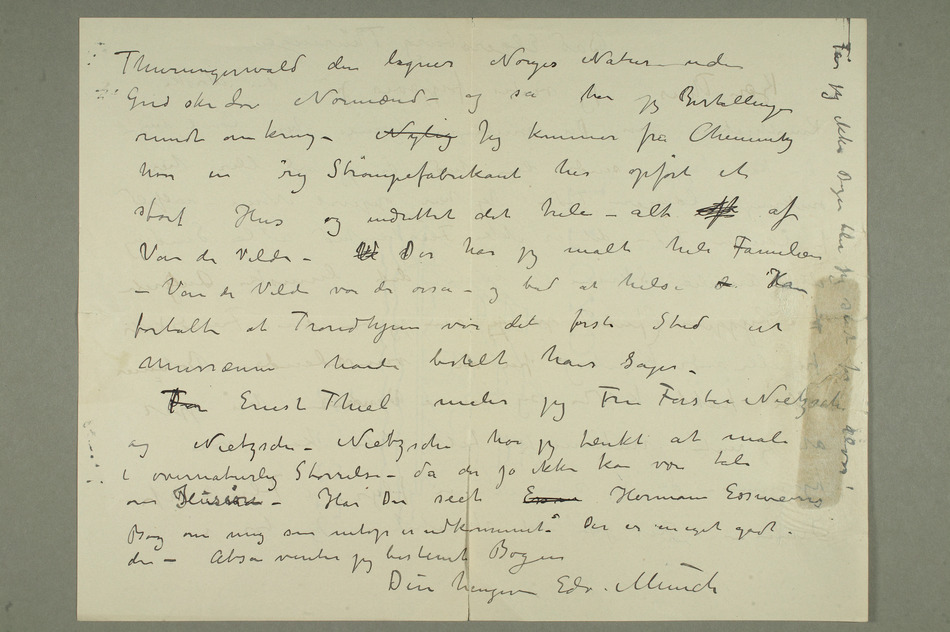 Thüringerwald der ligner Norges Natur – uden
Gud ske lov Nordmænd – og så har jeg Bestillinger
rundt omkring – Nylig Jeg kommer fra Chemnitz
hvor en rig Strömpefabrikant har opført et
stort Hus og indrettet det hele – alt af
Van de Velde – Der har jeg malt hele Familien
– Van de Velde var der også – og bad at hilse Han
fortalte at Trondhjem var det første Sted et
Musæum havde bestilt hans Sager –
Ernest Thiel maler jeg Fru Förster Nietzsche
og Nietzsche – Nietzsche har jeg tænkt at male
i overnaturlig Størrelse – da der jo ikke kan være tale
om Illusion – Har Du seet Herman Essweins
Bog om mig som netop er udkommet? Den er meget god –
den – Altså venter jeg bestemt Bogen
Din hengivne Edv. Munch
Får jeg ikke Bogen blir jeg